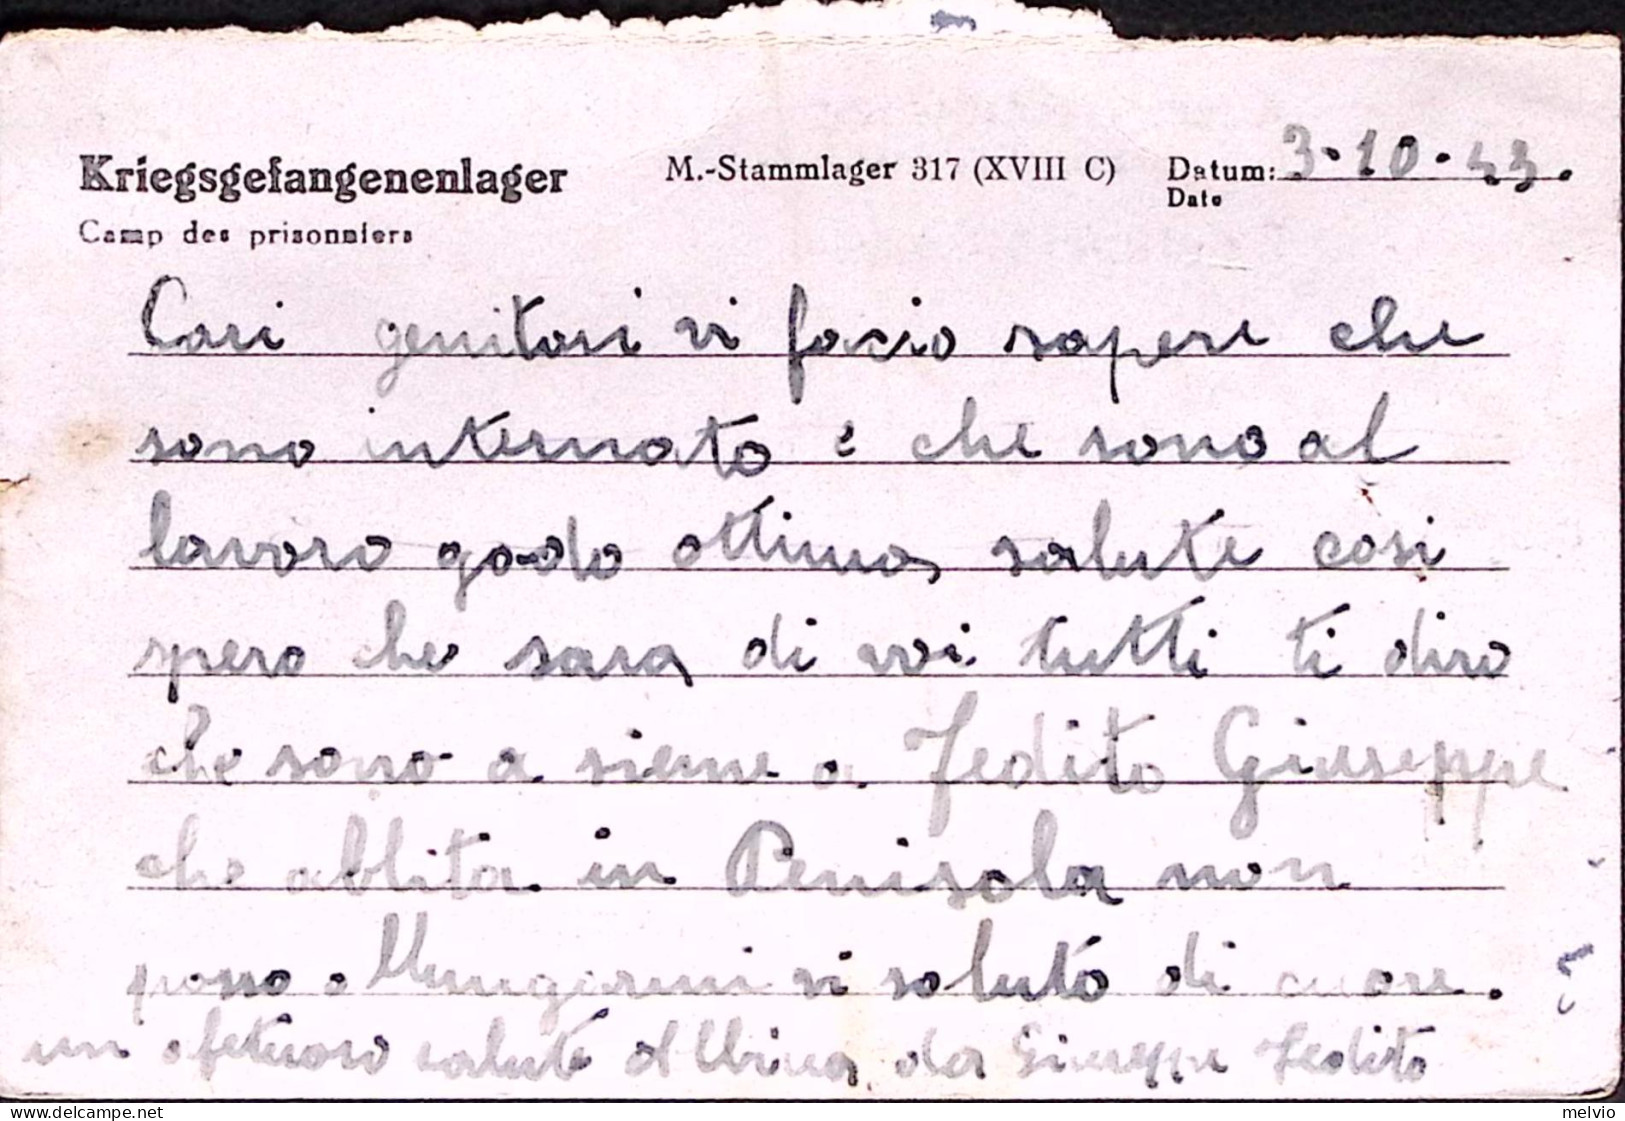 Kriegsgefangenenlager M.-Stammlager 317 (XVIII C) Datum: 3.10.43.
Date
Camp des prisonniers
Cari genitori vi facio sapere che
sono internato e che sono al
lavoro godo ottima salute cosi
spero che sara di voi tutti ti diro
che sono a sieme a Tedito Giuseppe
che abbita in Penisola non
posso allungarmi vi saluto di cuore.
un afetuoso salute Albina da Giuseppe Tedito
melvio